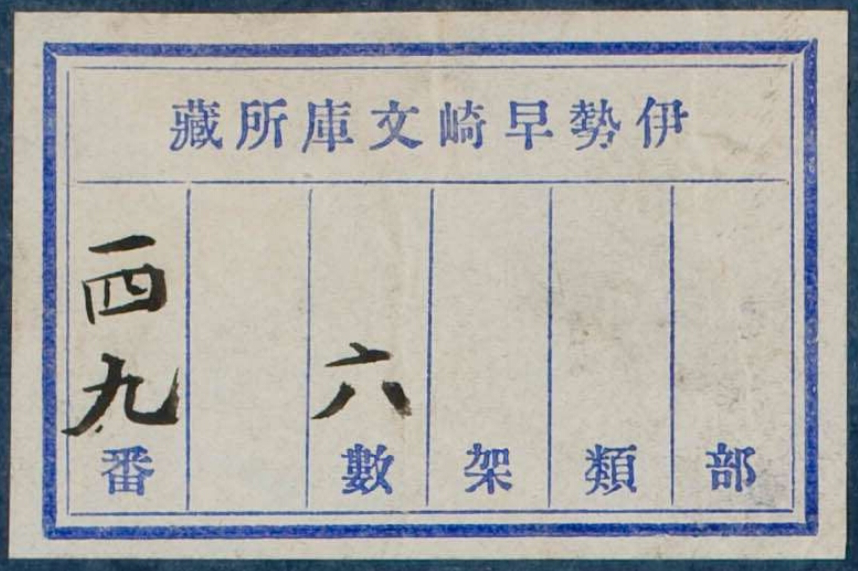 伊勢早崎文庫所藏
部
類
架
六數
一四九番